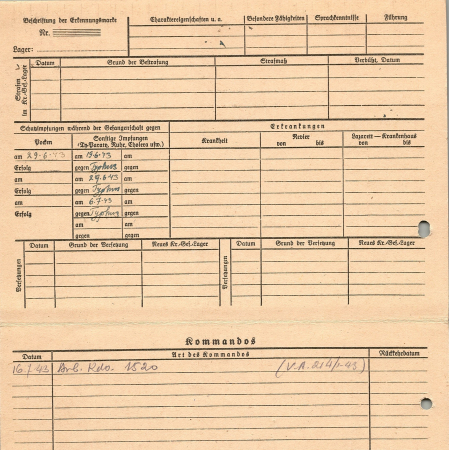 Beschriftung der Erkennungsmarke
Nr.
Lager:
Charaktereigenschaften u. a.
Besondere Fähigkeiten
Sprachkenntnisse
Führung
Strafen im Kr.-Gef.-Lager
Datum
Grund der Bestrafung
Strafmaß
Verbüßt, Datum
Schutzimpfungen während der Gefangenschaft gegen
Erkrankungen
Pocken
Sonstige Impfungen
(Ty-Paraty, Ruhr, Cholera usw.)
Krankheit
Revier
von bis
Lazarett — Krankenhaus
von bis
am 29.6.43 am 15.6.43 am
Erfolg gegen Typhus gegen
am am 29.6.43 am
Erfolg gegen Typhus gegen
am am 6.7.43 am
Erfolg gegen Typhus gegen
am am
gegen gegen
Versetzungen
Datum Grund der Versetzung Neues Kr.-Gef.-Lager
Versetzungen
Datum Grund der Versetzung Neues Kr.-Gef.-Lager
Kommandos
Datum Art des Kommandos Rückkehrdatum
Arb. Kdo. 1520